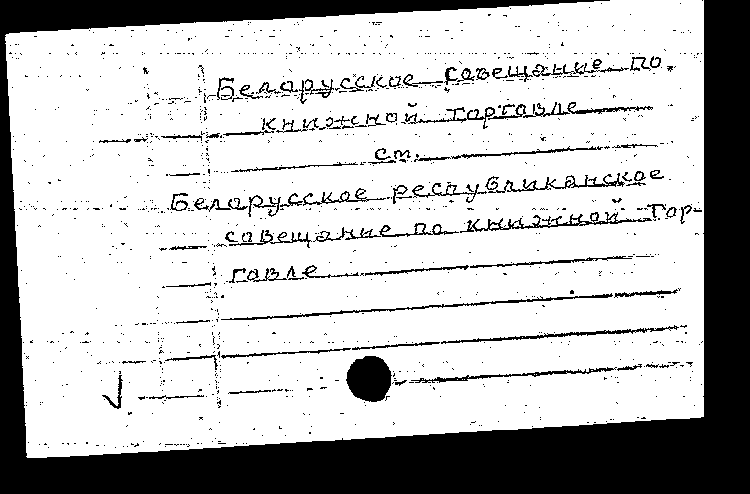 Беларусское совещание по
книжной торговле
см.
Беларусское республиканское
совещание по книжной тор-
говле